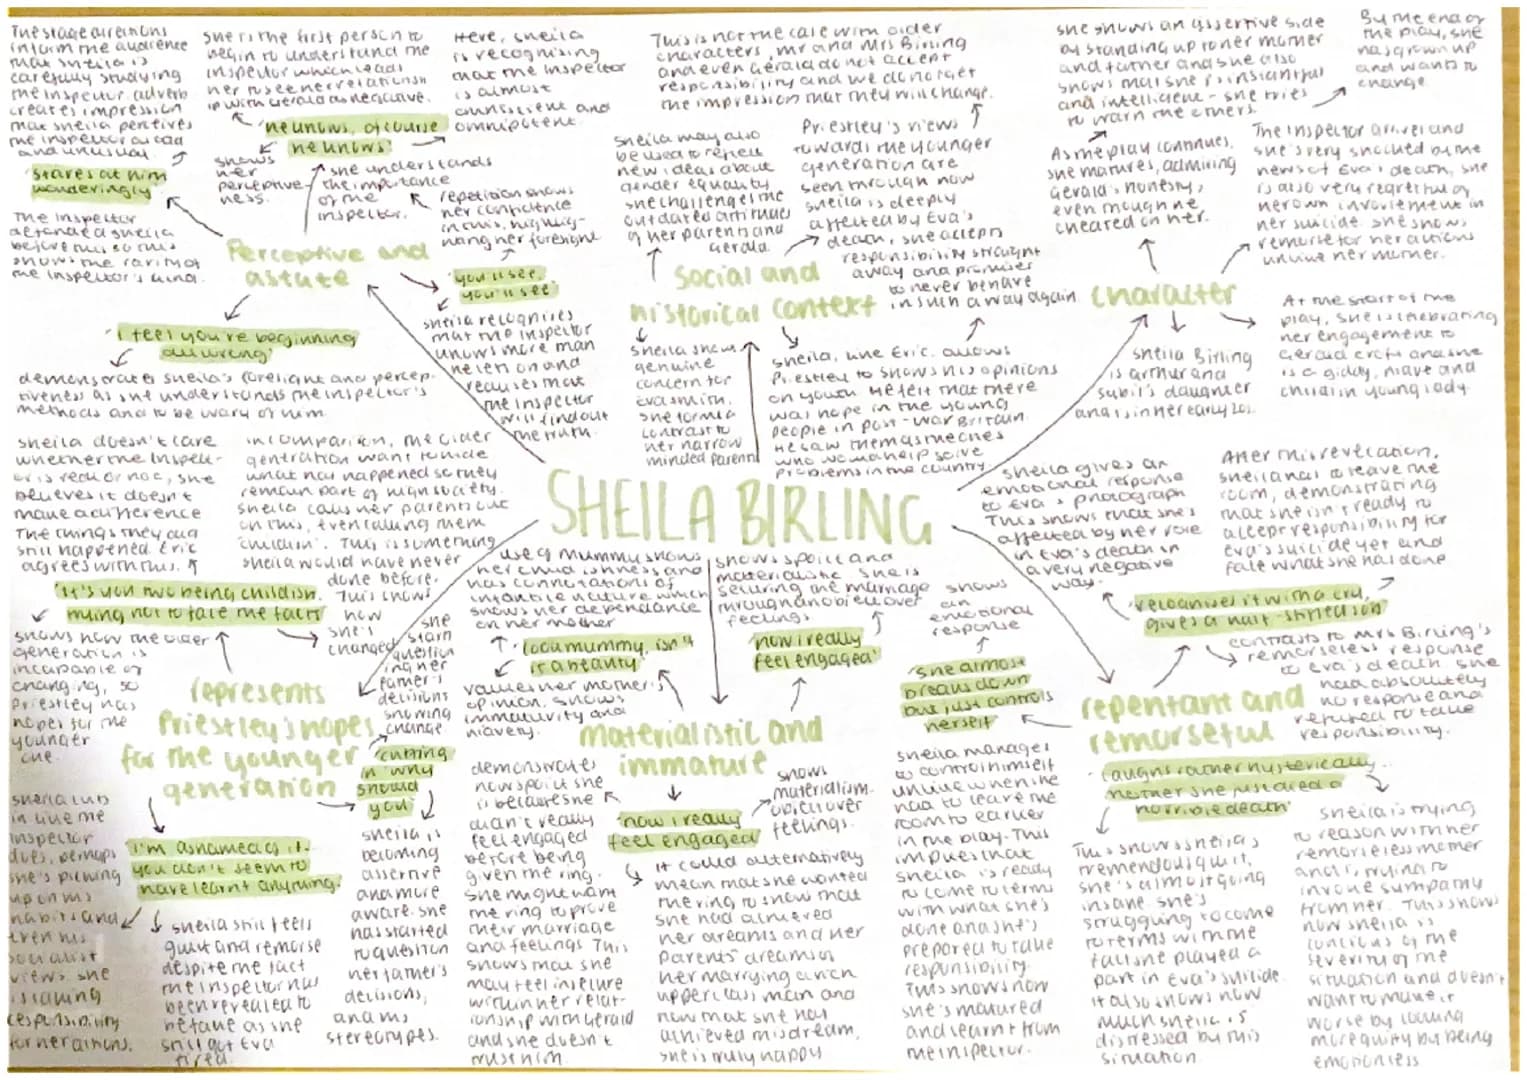 SHEILA BIRLING
Perceptive and
astute
The stage directions
inform the audience
that Sheila is
carefully studying
the inspector. adverb
creates impression
that Sheila percives
the inspector as odd
and unusual.
'stares at him
wonderingly'
The inspector
defended Sheila
before this so this
shows the rarity of
the inspector's kind.
She is the first person to
begin to understand the
inspector which leads
her to see her relations
ip with Gerald as negative.
'he knows, of course
he knows'
shows
her
perceptive-
ness.
Here, Sheila
is recognising
that the inspector
is almost
omniscient and
omnipotent.
she understands
the importance
of the
inspector.
repetition shows
her confidence
in this, highlig-
hting her foresight
'you'll see,
you'll see'
Sheila recognises
that the inspector
knows more than
he lets on and
realises that
the inspector
will find out
the truth.
'I feel you're beginning
all wrong'
demonstrates Sheila's foresight and percep-
tiveness as she understands the inspector's
methods and to be wary of him.
Social and
historical context
This is not the case with older
characters, Mr and Mrs Birling
and even Gerald do not accept
responsibility and we do not get
the impression that they will change.
Sheila may also
be used to reflect
new ideas about
gender equality
she challenges the
outdated attitudes
of her parents and
Gerald.
Priestley's views
towards the younger
generation are
seen through how
Sheila is deeply
affected by Eva's
death, she accepts
responsibility straight
away and promises
to never behave
in such a way again.
Sheila shows
genuine
concern for
Eva Smith.
she forms a
contrast to
her narrow
minded parents
Sheila, like Eric, allows
Priestley to show his opinions
on youth. He felt that there
was hope in the young
people in post-war Britain.
He saw them as the ones
who would help solve
problems in the country
character
She shows an assertive side
by standing up to her mother
and father and she also
shows that she is insightful
and intelligent - she tries
to warn the others.
By the end of
the play, she
has grown up
and wants to
change
As the play continues,
she matures, admiring
Gerald's honesty,
even though he
cheated on her.
The inspector arrives and
she's very shocked by the
news of Eva's death, she
is also very regretful of
her own involvement in
her suicide. She shows
remorse for her actions
unlike her mother.
Sheila Birling
is Arthur and
Sybil's daughter
and is in her early 20s.
At the start of the
play, she is celebrating
her engagement to
Gerald Croft and she
is a giddy, naive and
childish young lady
represents
Priestley's hopes
for the younger
generation
Sheila doesn't care
whether the inspect-
or is real or not, she
believes it doesn't
make a difference
The things they did
still happened. Eric
agrees with this.
in comparison, the older
generation want to hide
what has happened so they
remain part of high society.
Sheila calls her parents out
on this, even calling them
'childish'. This is something
Sheila would have never
done before.
This shows
how
she's
changed
'it's you two being childish,
trying not to face the facts'
shows how the older
generation is
incapable of
changing, so
Priestley has
hopes for the
younger
one.
she
starts
question
ing her
father's
decisions
showing
change
'cutting
in 'why
should
you''
Sheila is
becoming
assertive
and more
aware. she
has started
to question
her father's
decisions,
and his
stereotypes.
'I'm ashamed of it.
you don't seem to
have learnt anything.'
Sheila cuts
in like the
inspector
does, perhaps
she's picking
up on his
habits and
even his
socialist
views. she
is taking
responsibility
for her actions.
Sheila still feels
guilt and remorse
despite the fact
the inspector has
been revealed to
be fake as she
still got Eva
fired.
Materialistic and
immature
use of mummy shows
her childishness and
has connotations of
infantile nature which
shows her dependance
on her mother
'look mummy, isn't
it a beauty'
values her mother's
opinion, shows
immaturity and
naivety.
shows spoilt and
materialistic. She is
securing the marriage
through an object over
feelings
'now I really
feel engaged'
demonstrates
how spoilt she
is because she
didn't really
feel engaged
before being
given the ring.
she might want
the ring to prove
their marriage
and feelings This
shows that she
may feel insecure
within her relat-
ionship with Gerald
and she doesn't
trust him.
'now I really
feel engaged'
shows
materialism-
object over
feelings.
it could alternatively
mean that she wanted
the ring to show that
she had achieved
her dreams and her
parents' dreams of
her marrying a rich
upper class man and
now that she has
achieved this dream,
she is truly happy
repentant and
remorseful
Sheila gives an
emotional response
to Eva's photograph
This shows that she's
affected by her role
in Eva's death in
a very negative
way.
After this revelation,
Sheila has to leave the
room, demonstrating
that she isn't ready to
accept responsibility for
Eva's suicide yet and
face what she has done
'recognises it with a cry,
gives a half-stifled sob'
contrasts to Mrs Birling's
remorseless response
to Eva's death. she
had absolutely
no response and
refused to take
responsibility.
shows
an
emotional
response
'she almost
breaks down
but just controls
herself'
Sheila manages
to control himself
unlike when she
had to leave the
room to earlier
in the play. This
implies that
Sheila is ready
to come to terms
with what she's
done and she's
prepared to take
responsibility.
This shows how
she's matured
and learnt from
the inspector.
'laughs rather hysterically...
mother she just died a
horrible death'
This shows Sheila's
tremendous guilt,
she's almost going
insane. she's
struggling to come
to terms with the
fact she played a
part in Eva's suicide.
it also shows how
much Sheila is
distressed by this
situation
Sheila is trying
to reason with her
remorseless mother
and is trying to
invoke sympathy
from her. This shows
how Sheila is
concious of the
severity of the
situation and doesn't
want to make it
worse by looking
more guilty by being
emotionless